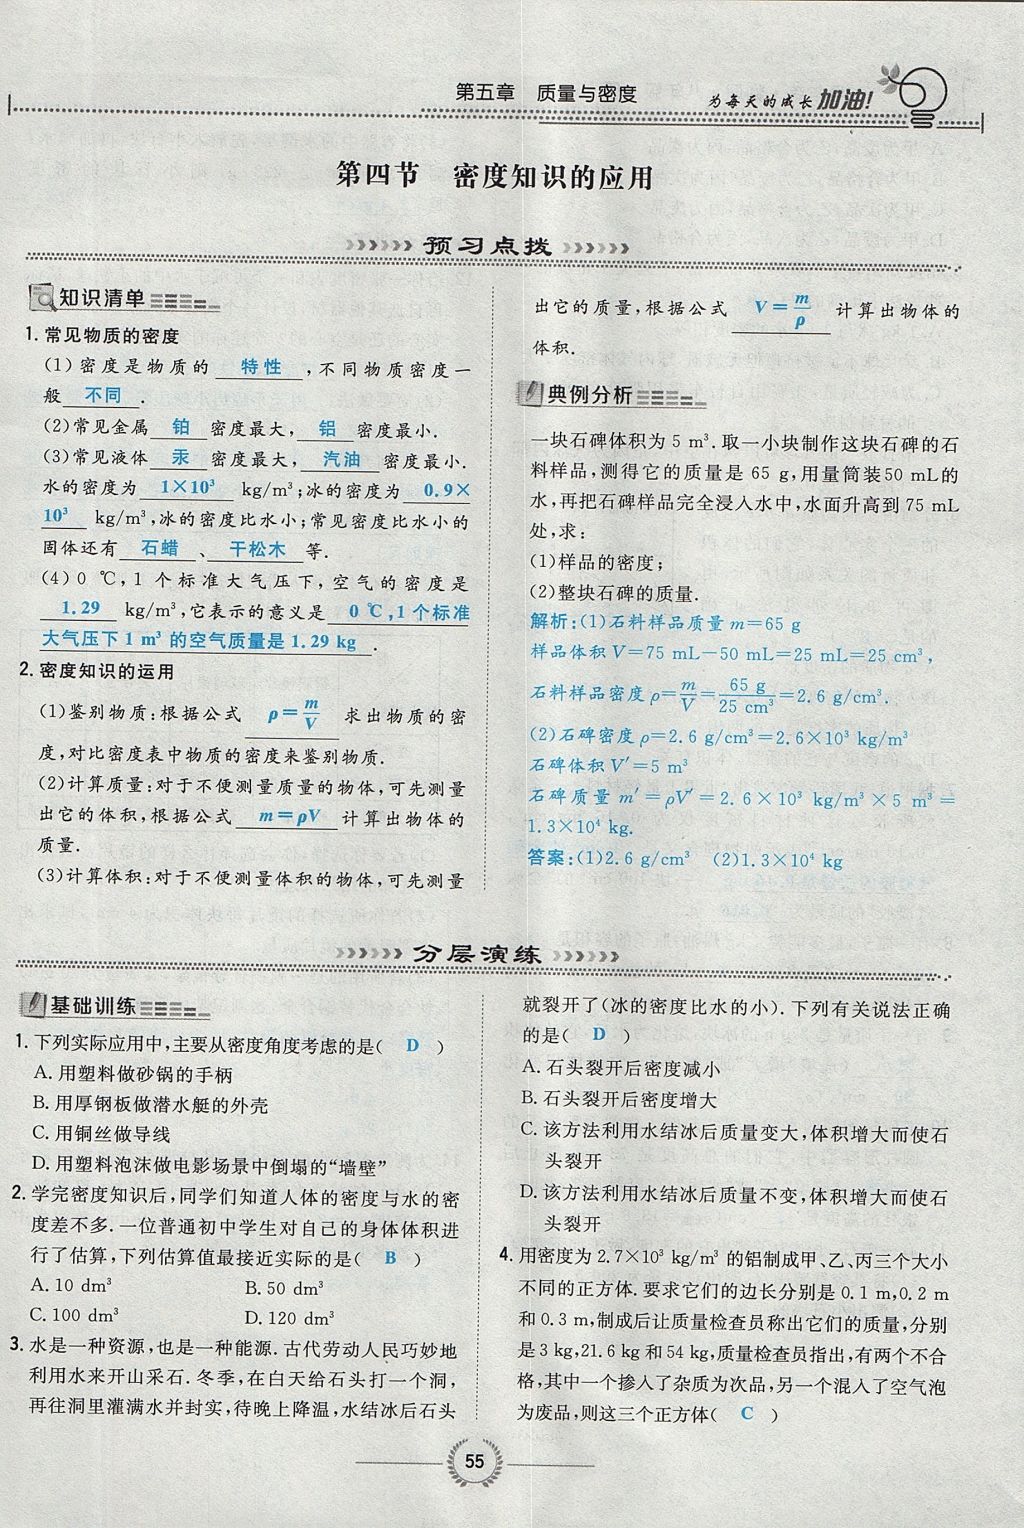 第五章 质量与密度
为每天的成长加油!
第四节 密度知识的应用
预习点拨
知识清单
1. 常见物质的密度
(1)密度是物质的 特性 ,不同物质密度一
般 不同 .
(2)常见金属 铂 密度最大, 铝 密度最小.
(3)常见液体 汞 密度最大, 汽油 密度最小.
水的密度为 1×10³ kg/m³;冰的密度为 0.9×
10³ kg/m³,冰的密度比水小;常见密度比水小的
固体还有 石蜡 、 干松木 等.
(4)0 ℃,1个标准大气压下,空气的密度是
1.29 kg/m³,它表示的意义是 0 ℃,1个标准
大气压下1 m³的空气质量是1.29 kg .
2. 密度知识的运用
(1)鉴别物质:根据公式 ρ=m/V 求出物质的密
度,对比密度表中物质的密度来鉴别物质.
(2)计算质量:对于不便测量质量的物体,可先测量
出它的体积,根据公式 m=ρV 计算出物体的
质量.
(3)计算体积:对于不便测量体积的物体,可先测量
出它的质量,根据公式 V=m/ρ 计算出物体的
体积.
典例分析
一块石碑体积为5 m³.取一小块制作这块石碑的石
料样品,测得它的质量是65 g,用量筒装50 mL的
水,再把石碑样品完全浸入水中,水面升高到75 mL
处,求:
(1)样品的密度;
(2)整块石碑的质量.
解析:(1)石料样品质量m=65 g
样品体积V=75 mL-50 mL=25 mL=25 cm³,
石料样品密度ρ=m/V=65 g/25 cm³=2.6 g/cm³.
(2)石碑密度ρ=2.6 g/cm³=2.6×10³ kg/m³
石碑体积V′=5 m³
石碑质量m′=ρV′=2.6×10³ kg/m³×5 m³=
1.3×10⁴ kg.
答案:(1)2.6 g/cm³ (2)1.3×10⁴ kg
分层演练
基础训练
1. 下列实际应用中,主要从密度角度考虑的是( D )
A. 用塑料做砂锅的手柄
B. 用厚钢板做潜水艇的外壳
C. 用铜丝做导线
D. 用塑料泡沫做电影场景中倒塌的“墙壁”
2. 学完密度知识后,同学们知道人体的密度与水的密
度差不多.一位普通初中学生对自己的身体体积进
行了估算,下列估算值最接近实际的是( B )
A. 10 dm³ B. 50 dm³
C. 100 dm³ D. 120 dm³
3. 水是一种资源,也是一种能源.古代劳动人民巧妙地
利用水来开山采石.冬季,在白天给石头打一个洞,
再往洞里灌满水并封实,待晚上降温,水结冰后石头
就裂开了(冰的密度比水的小).下列有关说法正确
的是( D )
A. 石头裂开后密度减小
B. 石头裂开后密度增大
C. 该方法利用水结冰后质量变大,体积增大而使石
头裂开
D. 该方法利用水结冰后质量不变,体积增大而使石
头裂开
4. 用密度为2.7×10³ kg/m³的铝制成甲、乙、丙三个大小
不同的正方体.要求它们的边长分别是0.1 m,0.2 m
和0.3 m,制成后让质量检查员称出它们的质量,分别
是3 kg,21.6 kg和54 kg,质量检查员指出,有两个不合
格,其中一个掺入了杂质为次品,另一个混入了空气泡
为废品,则这三个正方体( C )
55